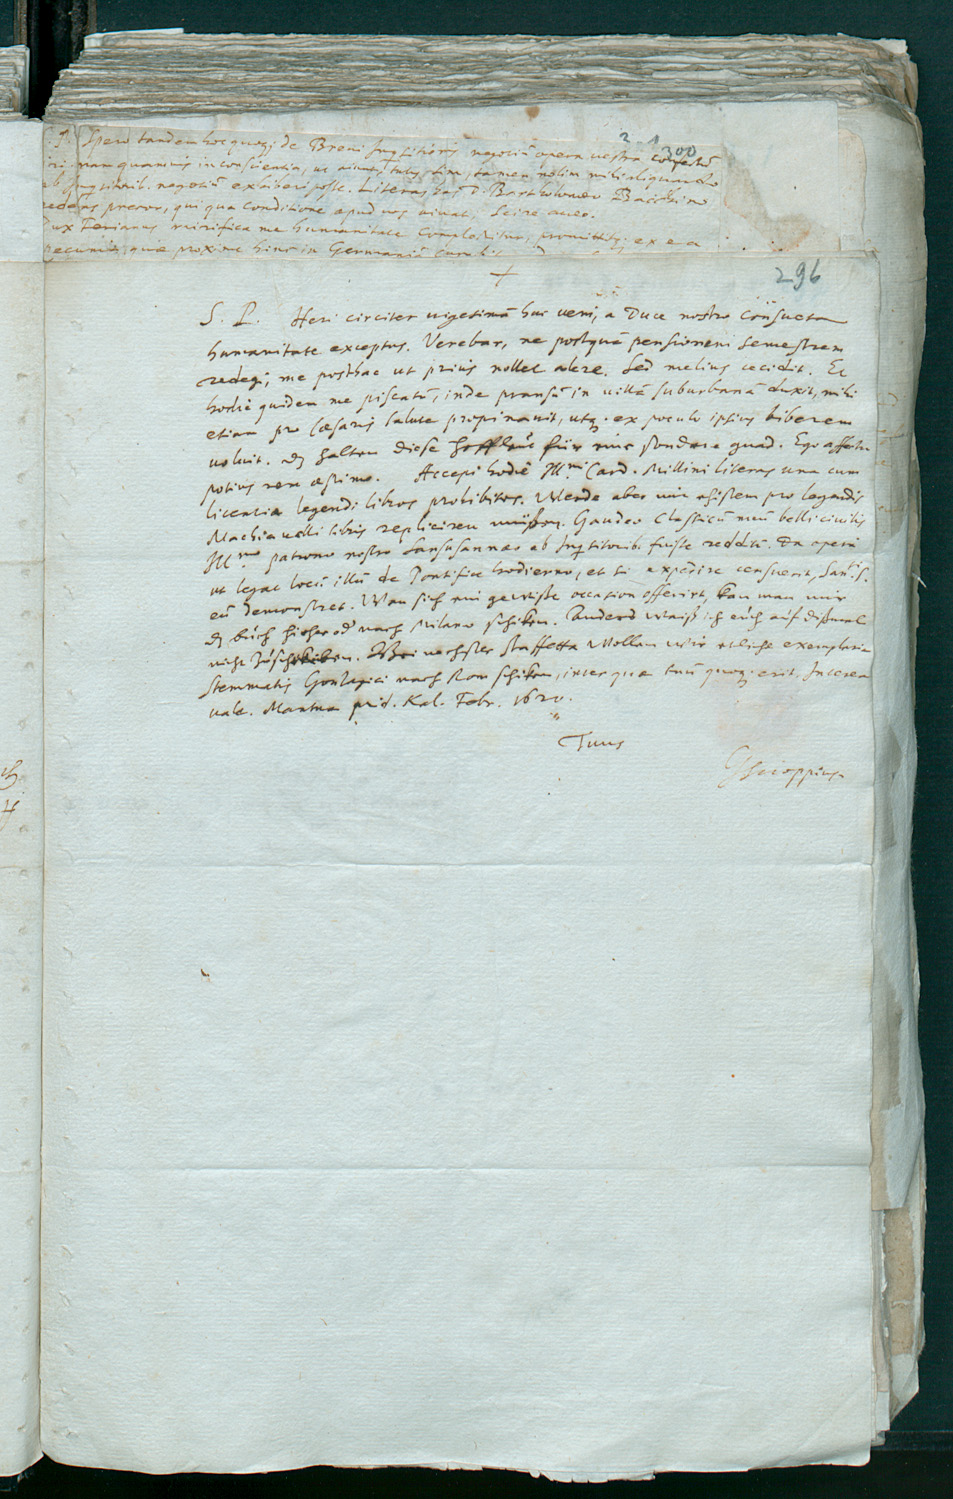 300
S. P. Spero tandem hoc quoq; de Brevi Inq̄sitionis negotiū opera vestra confectū
nam quamvis in conscientia, ut aiunt, tutus sim, tamen nolim mihi aliquando
ab Inq̄sitorib. negotiū exhiberi posse. Literas has D. Bartholomeo
reddas precor, qui qua conditione apud vos vivat, scire aveo.
Dux Ferianus mirifica me humanitate complectitur, promittitq; ex ea
pecunia, quae proxime hinc in Germaniā
296
S. P. Heri circiter vigesimā huc veni, a Duce nostro consueta
humanitate exceptus. Verebar, ne postquā pensionem semestrem
redegi, me posthac ut prius nollet alere. Sed melius cecidit. Et
hodie quidem me piscatū, inde pransū in villā suburbanā duxit, mihi
etiam pro Caesaris salute propinavit, utq; ex poculo ipsius biberem
voluit. dz halten diese Hoffleut für eine sondere gnad. Ego affectu
potius rem aestimo. Accepi hodie Ill.mi Card. Millini literas una cum
licentia legendi libros prohibitos. Werde aber min pro legendis
Machiavelli libris repliciren müssen. Gaudeo Classicū meū belli civilis
Ill.mo patrono nostro Sansusannae ab Inq̄sitorib. fuisse redditū. Da operā
ut legat locū illū de Pontifice hodierno, et si expedire censuerit, San.ti S.
eū demonstret. Wan sich ein gewisse occasion offerirt, kan man mir
dz buch hieher od' nach Milano schiken. Anders waiß ich euch auf dißmal
nicht zuschreiben. Bei nechster staffetta wollen wir etliche exemplaria
Stemmatis Gonzagici nach Rom schiken, inter quae tuū quoq; erit. Interea
vale. Mantua prid. Kal. Febr. 1620.
Tuus
GScioppius